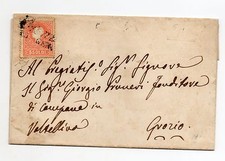 Al Pregiatis.º Sig.r Signore
Il Sig.r Giorgio Pruneri Fonditore
di Campane in
Valtellina Grosio